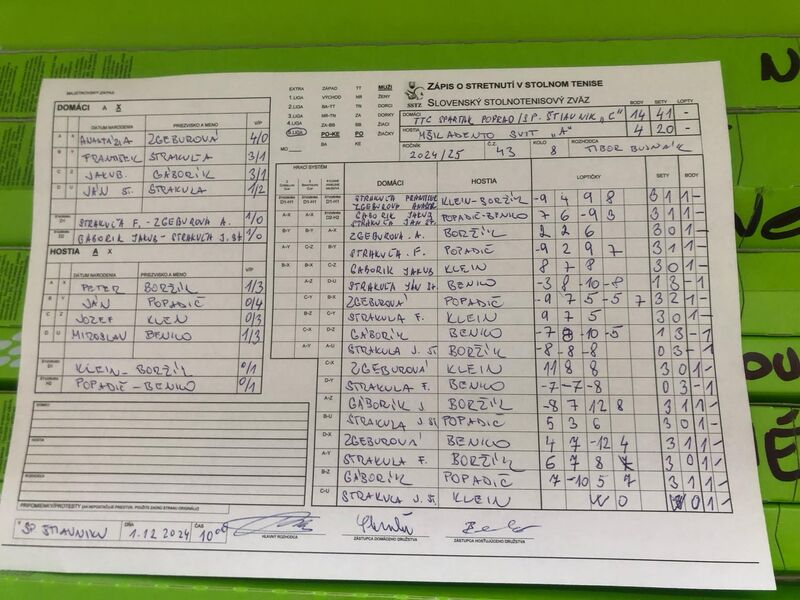 MAJSTROVSKÝ ZÁPAS
DOMÁCI A X
DÁTUM NARODENIA PRIEZVISKO A MENO V/P
A X ANASTÁZIA ZGEBUROVÁ 4/0
B Y FRANTIŠEK STRAKULA 3/1
C Z JAKUB. GÁBORÍK 3/1
D U JÁN ST. STRAKULA 1/2
ŠTVORHRA D1 STRAKULA F. - ZGEBUROVA A. 1/0
ŠTVORHRA D2 GÁBORIK JAKUB - STRAKULA J. ST 1/0
HOSTIA A X
DÁTUM NARODENIA PRIEZVISKO A MENO V/P
A X PETER BORŽÍK 1/3
B Y JÁN POPADIČ 0/4
C Z JOZEF KLEIN 0/3
D U MIROSLAV BENKO 1/3
ŠTVORHRA KLEIN - BORŽÍK 0/1
ŠTVORHRA H2 POPADIČ - BENKO 0/1
DOMÁCI
HOSTIA
ROZHODCA
PRIPOMIENKY/PROTESTY (AK NEPOSTAČUJE PRIESTOR, POUŽITE ZADNÚ STRANU ORIGINÁLU)
V SP ŠTIAVNIKU DŇA 1.12 2024 ČAS 10
HLAVNÝ ROZHODCA
ZÁSTUPCA DOMÁCEHO DRUŽSTVA
ZÁSTUPCA HOSŤUJÚCEHO DRUŽSTVA
EXTRA ZÁPAD TT MUŽI
1. LIGA VÝCHOD NR ŽENY
2. LIGA BA-TT TN DORCI
3. LIGA NR-TN ZA DORKY
4. LIGA ZA-BB BB ŽIACI
5. LIGA PO-KE PO ŽIAČKY
MO BA KE
SSTZ
ZÁPIS O STRETNUTÍ V STOLNOM TENISE
SLOVENSKÝ STOLNOTENISOVÝ ZVÄZ
BODY SETY LOPTY
DOMÁCI TTC SPARTAK POPRAD/SP. ŠTIAVNIK „C" 14 41 -
HOSTIA MŠK ŁADENTO SVIT „A" 4 20 -
ROČNÍK 2024/25 Č.Z. 43 KOLO 8 ROZHODCA TIBOR BUSNAIK
HRACÍ SYSTÉM DOMÁCI HOSTIA LOPTIČKY SETY BODY
D1-H1 D1-H1 D1-H1 STRAKULA FRANTIŠEK ZGEBUROVÁ ANAST. KLEIN-BORŽÍK -9 4 9 8 3 1 1 -
A-X A-X D2-H2 GÁBORIK JAKUB STRAKULA JÁN ST. POPADIČ-BENKO 7 6 -9 3 3 1 1 -
B-Y B-Y A-X ZGEBUROVÁ. A. BORŽÍK 2 2 6 3 0 1 -
A-Y C-Z B-Y STRAKULA. F. POPADIČ -9 2 9 7 3 1 1 -
B-X B-X C-Z GÁBORIK JAKUB KLEIN 8 7 8 3 0 1 -
A-X D-U STRAKULA JÁN ST BENKO -3 8 -10 -8 1 3 - 1
C-Y B-X ZGEBUROVÁ POPADIČ -9 7 5 -5 7 3 2 1 -
B-Z C-Y STRAKULA F. KLEIN 9 7 5 3 0 1 -
C-X D-Z GÁBORÍK BENKO -7 8 -10 -5 1 3 - 1
A-Y A-U STRAKULA J. ST BORŽÍK -8 -8 -8 0 3 - 1
C-X ZGEBUROVÁ KLEIN 11 8 8 3 0 1 -
D-Y STRAKULA F. BENKO -7 -7 -8 0 3 - 1
A-Z GÁBORÍK J BORŽÍK -8 7 12 8 3 1 1 -
B-U STRAKULA J ST POPADIČ 5 3 6 3 0 1 -
D-X ZGEBUROVÁ BENKO 4 7 -12 4 3 1 1 -
A-Y STRAKULA F. BORŽÍK 6 7 8 3 0 1 -
B-Z GÁBORÍK POPADIČ 7 -10 5 7 3 1 1 -
C-U STRAKULA J. ST KLEIN W O 0 1 -